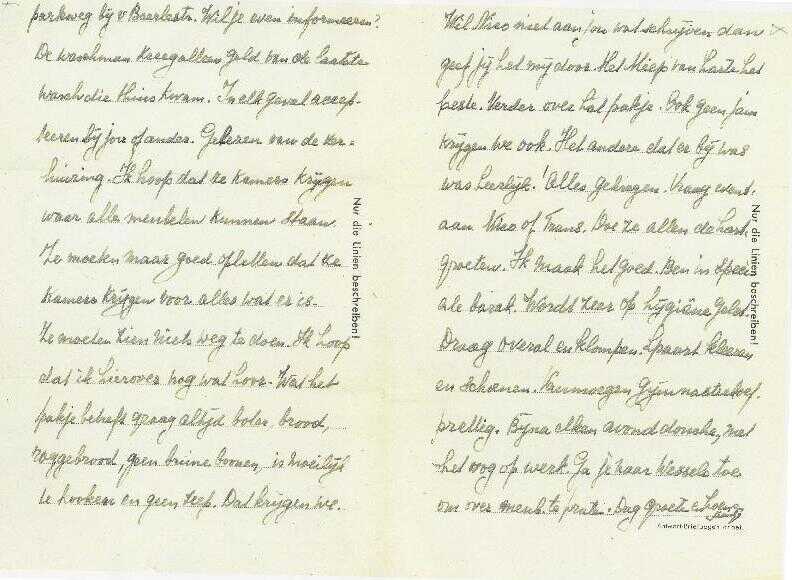 parkweg bij v Baerlestr. Wil je even informeeren?
De waschman kreeg alleen geld van de laatste
wasch die thuis kwam. In elk geval accep-
teeren bij jou of andes. Gelezen van de ver-
huizing. Ik hoop dat ze kamers krijgen
waar alle meubelen kunnen staan.
Ze moeten maar goed opletten dat ze
kamers krijgen voor alles wat er is.
Ze moeten zien niets weg te doen. Ik hoop
dat ik hierover nog wat hoor. Wat het
pakje betreft graag altijd boter, brood,
roggebrood, geen bruine boonen, is moeilijk
te kooken en geen zeep. Dat krijgen we.
Nur die Linien beschreiben!
Wil Nico niet aan jou wat schrijven dan
geef jij het mij door. Het Miep van harte het
beste. Verder over het pakje. Ook geen jam
krijgen we ook. Het andere dat er bij was
was heerlijk! Alles gekregen. Vraag even
aan Nico of Frans. Doe ze allen de hart.
groeten. Ik maak het goed. Ben in speci-
ale barak. Wordt zeer op hygiëne gelet.
Draag overal en klompen. Spaart kleeren
en schoenen. gymnastiek
prettig. Bijna elken avond douche, met
het oog op werk. Ga je naar Wessels toe
om over meub. te praten. Dag groeten
Nur die Linien beschreiben!
Antwort-Briefbogen anbei.